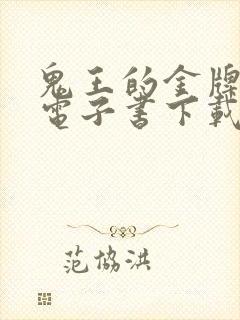 鬼王的金牌
電子書下載
范協洪